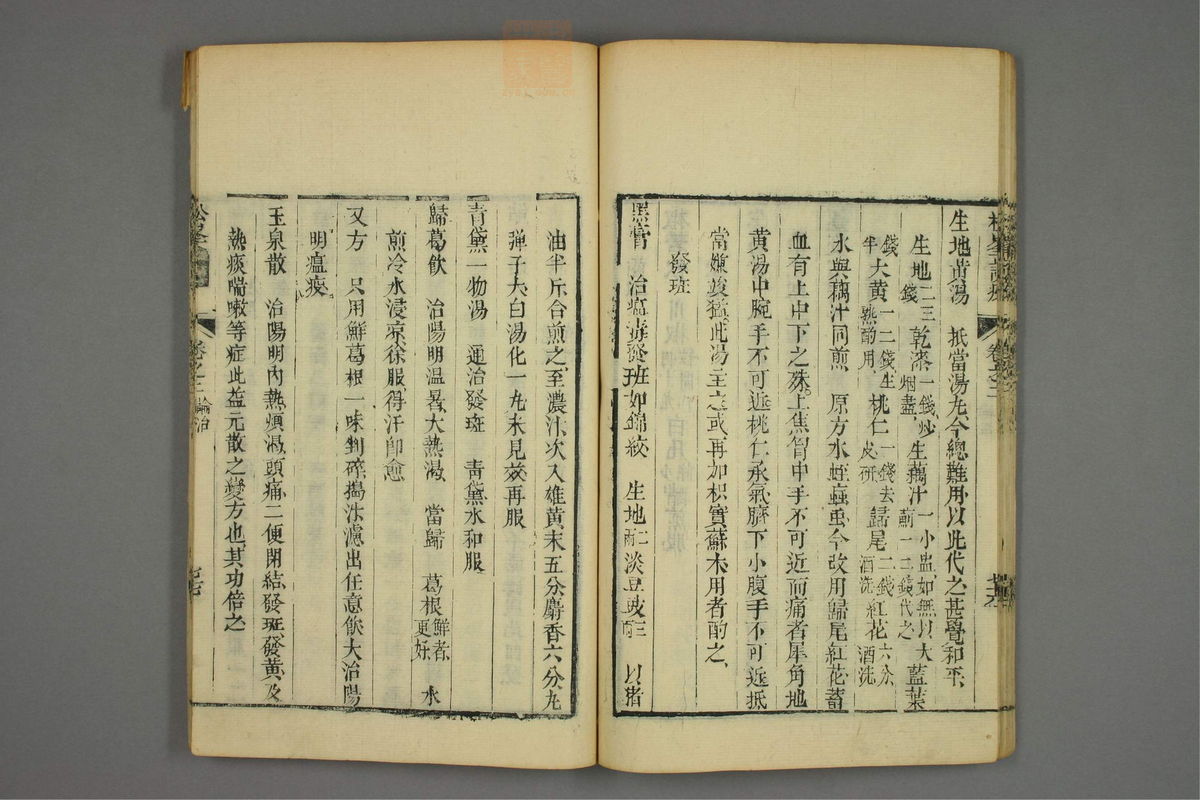 生地黃湯　抵當湯九今總難用以此代之甚覺和平
生地二三錢　乾漆一錢炒烟盡　生藕汁一小盅如無以大薊一二錢代之　藍葉
錢半　大黃一二錢生熟酌用　桃仁一錢去皮研　歸尾二錢酒洗　紅花六分酒洗
水與藕汁同煎　原方水蛭虻虫今改用歸尾紅花蓄
血有上中下之殊上焦胷中手不可近而痛者犀角地
黃湯中脘手不可近桃仁承氣臍下小腹手不可近抵
當嫌峻猛此湯主之或再加枳實蘇木用者酌之
發班
黑膏　治瘟毒發班如錦紋　生地二兩　淡豆豉三兩　以猪
油半斤合煎之至濃汁次入雄黃末五分麝香六分九
彈子大白湯化一九未見效再服
青黛一物湯　通治發斑　青黛水和服
歸葛飲　治陽明温暑大熱渴　當歸　葛根鮮者更妙　水
煎冷水浸凉徐服得汗卽愈
又方　只用鮮葛根一味剉碎搗汁濾出任意飲大治陽
明瘟疫
玉泉散　治陽明內熱煩渴頭痛二便閉結發斑發黃及
熱痰喘嗽等症此益元散之變方也其功倍之
松峯
卷之二　論治